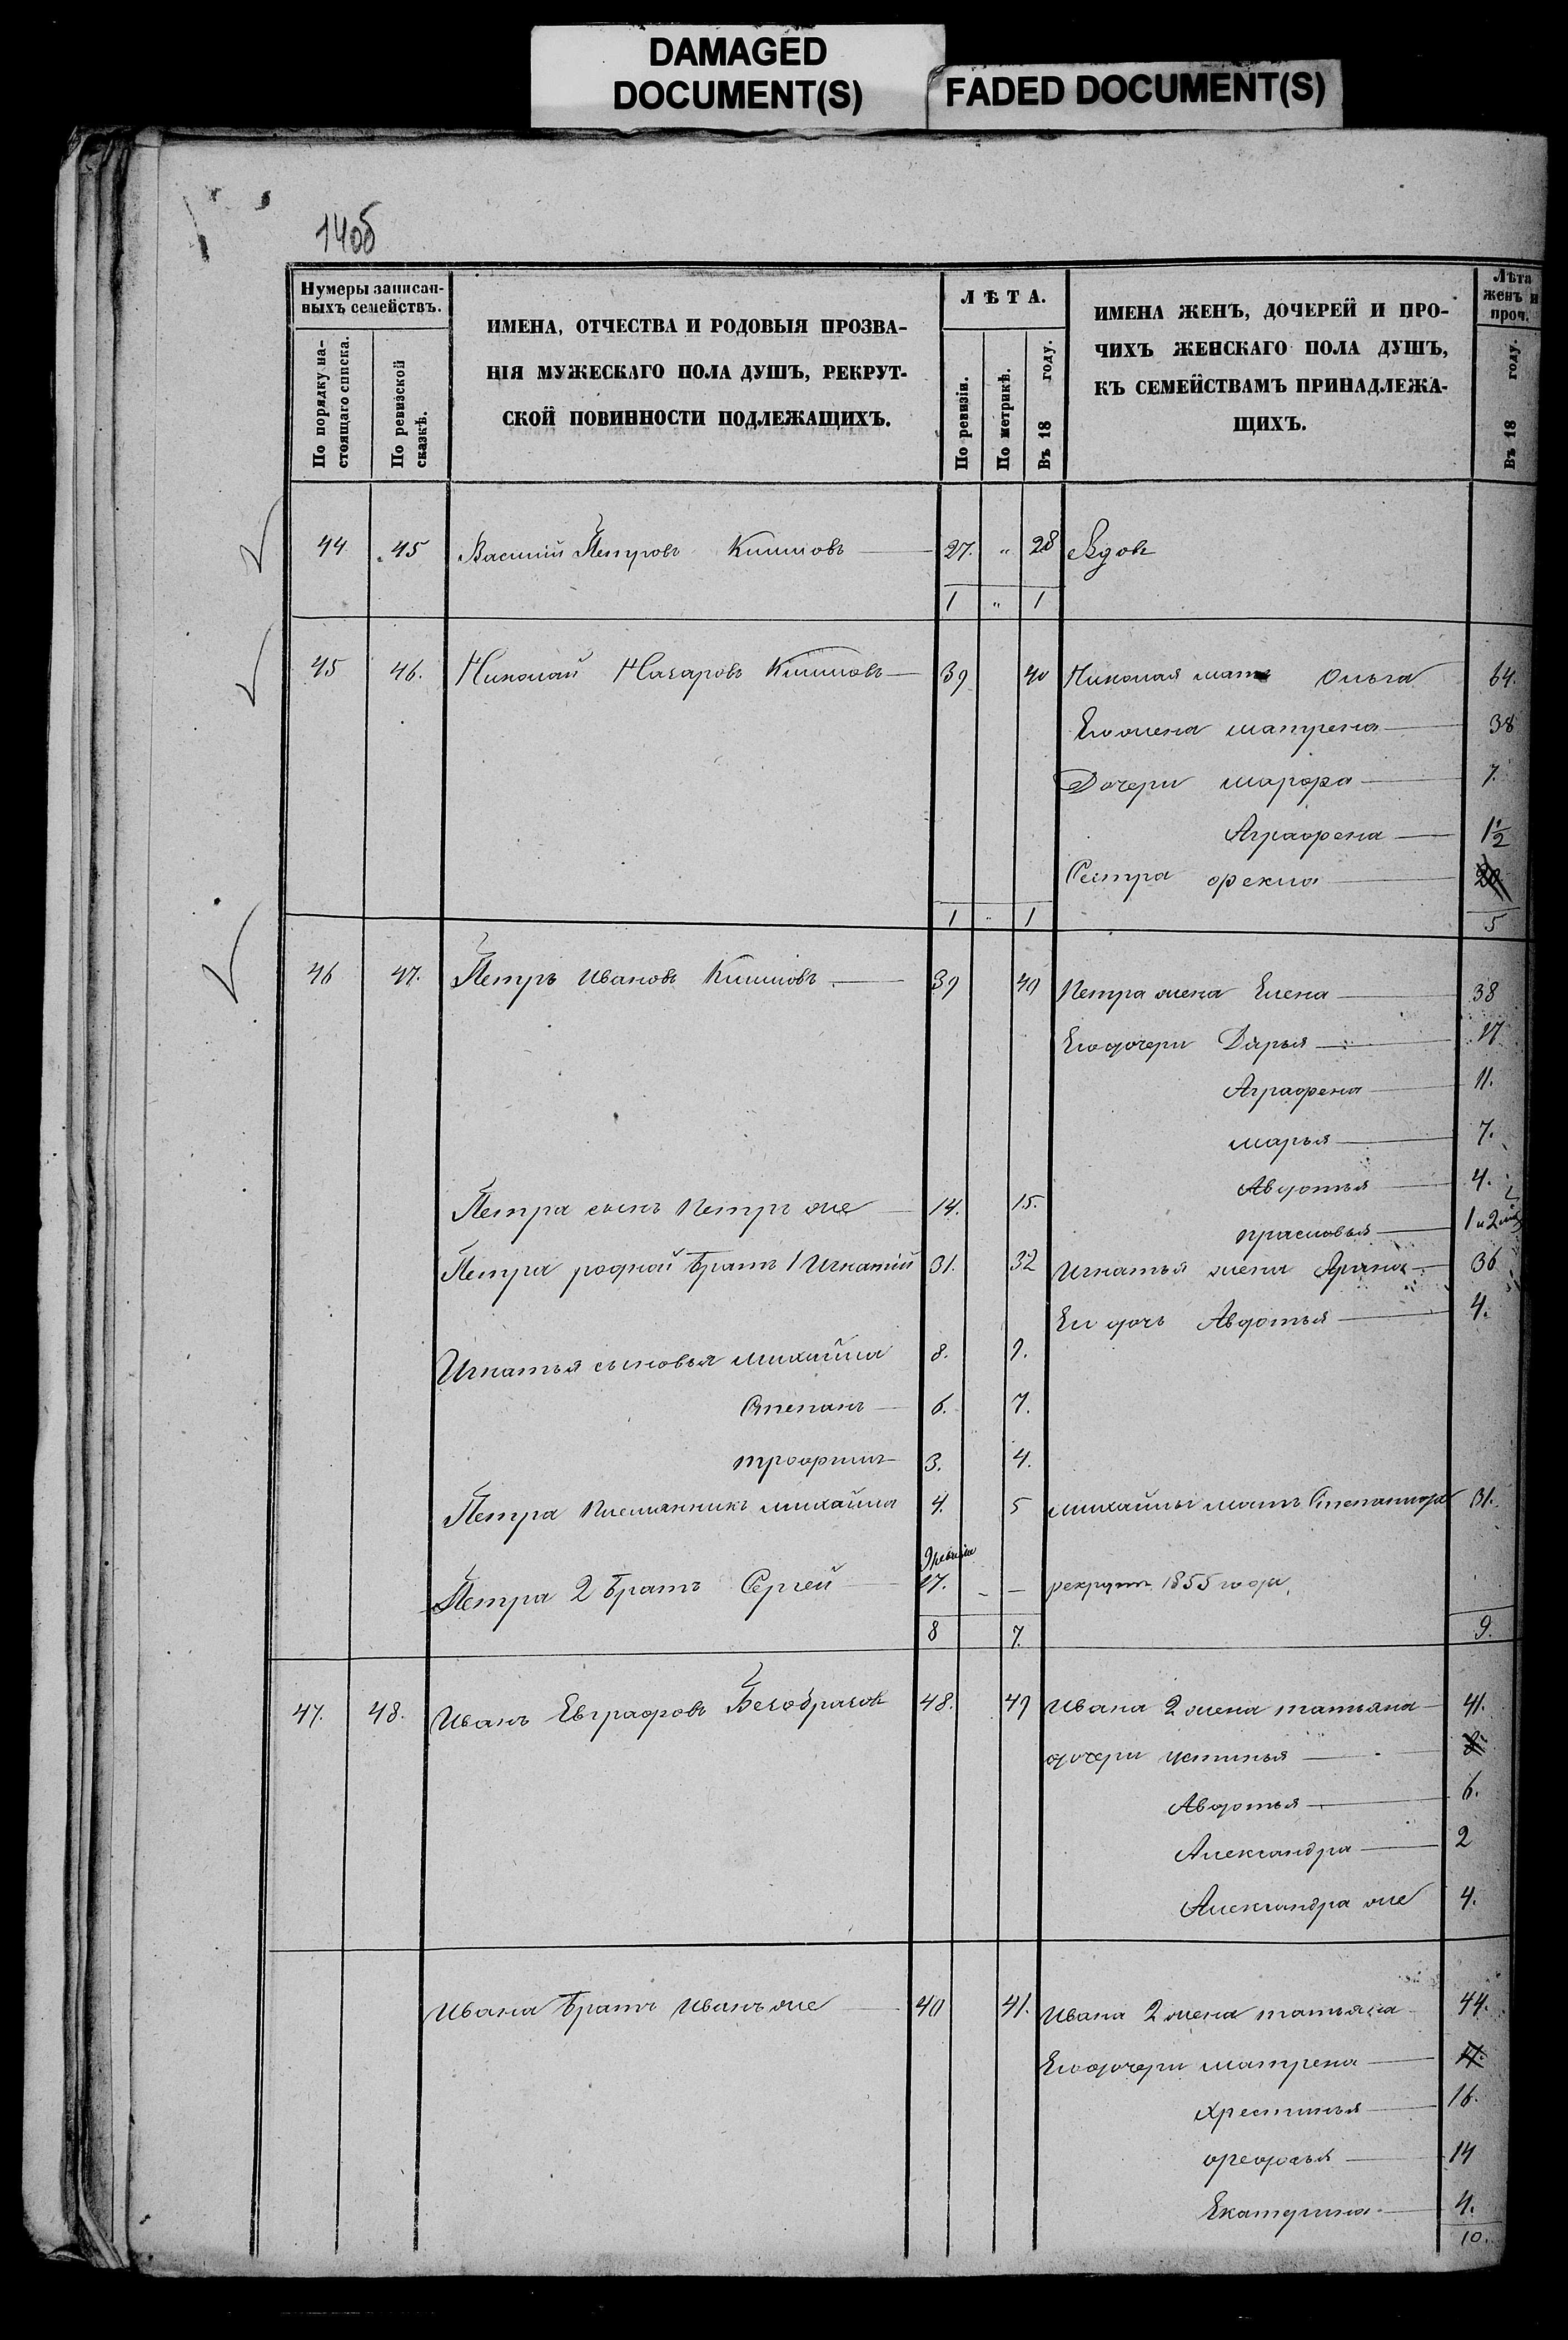 DAMAGED
DOCUMENT(S)
FADED DOCUMENT(S)
140б
Нумеры записан-
ныхъ семействъ.
По порядку на-
стоящаго списка.
По ревизской
сказкѣ.
ИМЕНА, ОТЧЕСТВА И РОДОВЫЯ ПРОЗВА-
НІЯ МУЖЕСКАГО ПОЛА ДУШЪ, РЕКРУТ-
СКОЙ ПОВИННОСТИ ПОДЛЕЖАЩИХЪ.
ЛѢТА.
По ревизіи.
По метрикѣ.
Въ 18 году.
ИМЕНА ЖЕНЪ, ДОЧЕРЕЙ И ПРО-
ЧИХЪ ЖЕНСКАГО ПОЛА ДУШЪ,
КЪ СЕМЕЙСТВАМЪ ПРИНАДЛЕЖА-
ЩИХЪ.
Лѣта
женъ и
проч.
Въ 18 году.
44 45 Василий Петровъ Климовъ 27. " 28 Вдовъ
1 " 1
45 46. Николай Назаровъ Климовъ 39 40 Николая мать Ольга 64.
Его жена матрена 38
Дочери марфа 7.
Аграфена 1½
Сестра фекла 20
1 " 1 5
46 47. Петръ Ивановъ Климовъ 39 40 Петра жена Елена 38
Его дочери Дарья 17
Аграфена 11.
марья 7.
Авдотья 4.
Петра сынъ Петръ же 14. 15.
прасковья 1 и 2 мѣ
Петра родной братъ 1 Игнатій 31. 32 Игнатья жена Арина 36
Его дочь Авдотья 4.
Игнатья сыновья михайла 8. 9.
Степанъ 6. 7.
трофимъ 3. 4.
Петра племянникъ михайла 4. 5 михайлы мать Степанида 31.
Петра 2 братъ Сергей 17. - - рекрутъ 1855 года.
8 7. 9.
47. 48. Иванъ Евграфовъ Безобразовъ 48. 49 Ивана 2 жена татьяна 41.
дочери устинья 8.
Авдотья 6.
Александра 2
Александра же 4.
Ивана братъ Иванъ же 40 41. Ивана 2 жена татьяна 44.
Его дочери матрена 17.
хрестинья 16.
федосья 14
Екатерина 4.
10.